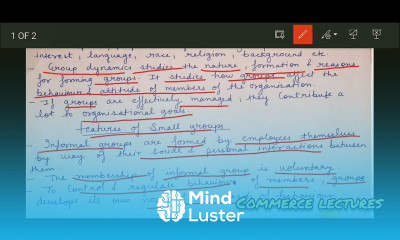 1 OF 2
interest, language, race, religion, background etc.
- Group dynamics studies the nature, formation & reasons
for forming groups. It studies how groups affect the
behaviour & attitude of members of the organisation.
- If groups are effectively managed, they contribute a
lot to organisational goals.
Features of Small groups
- Informal groups are formed by employees themselves
by way of their social & personal interactions between
them.
- The membership of informal group is voluntary
- To control & regulate behaviour of members, groups
develops its own
Mind
Luster
COMMERCE LECTURES